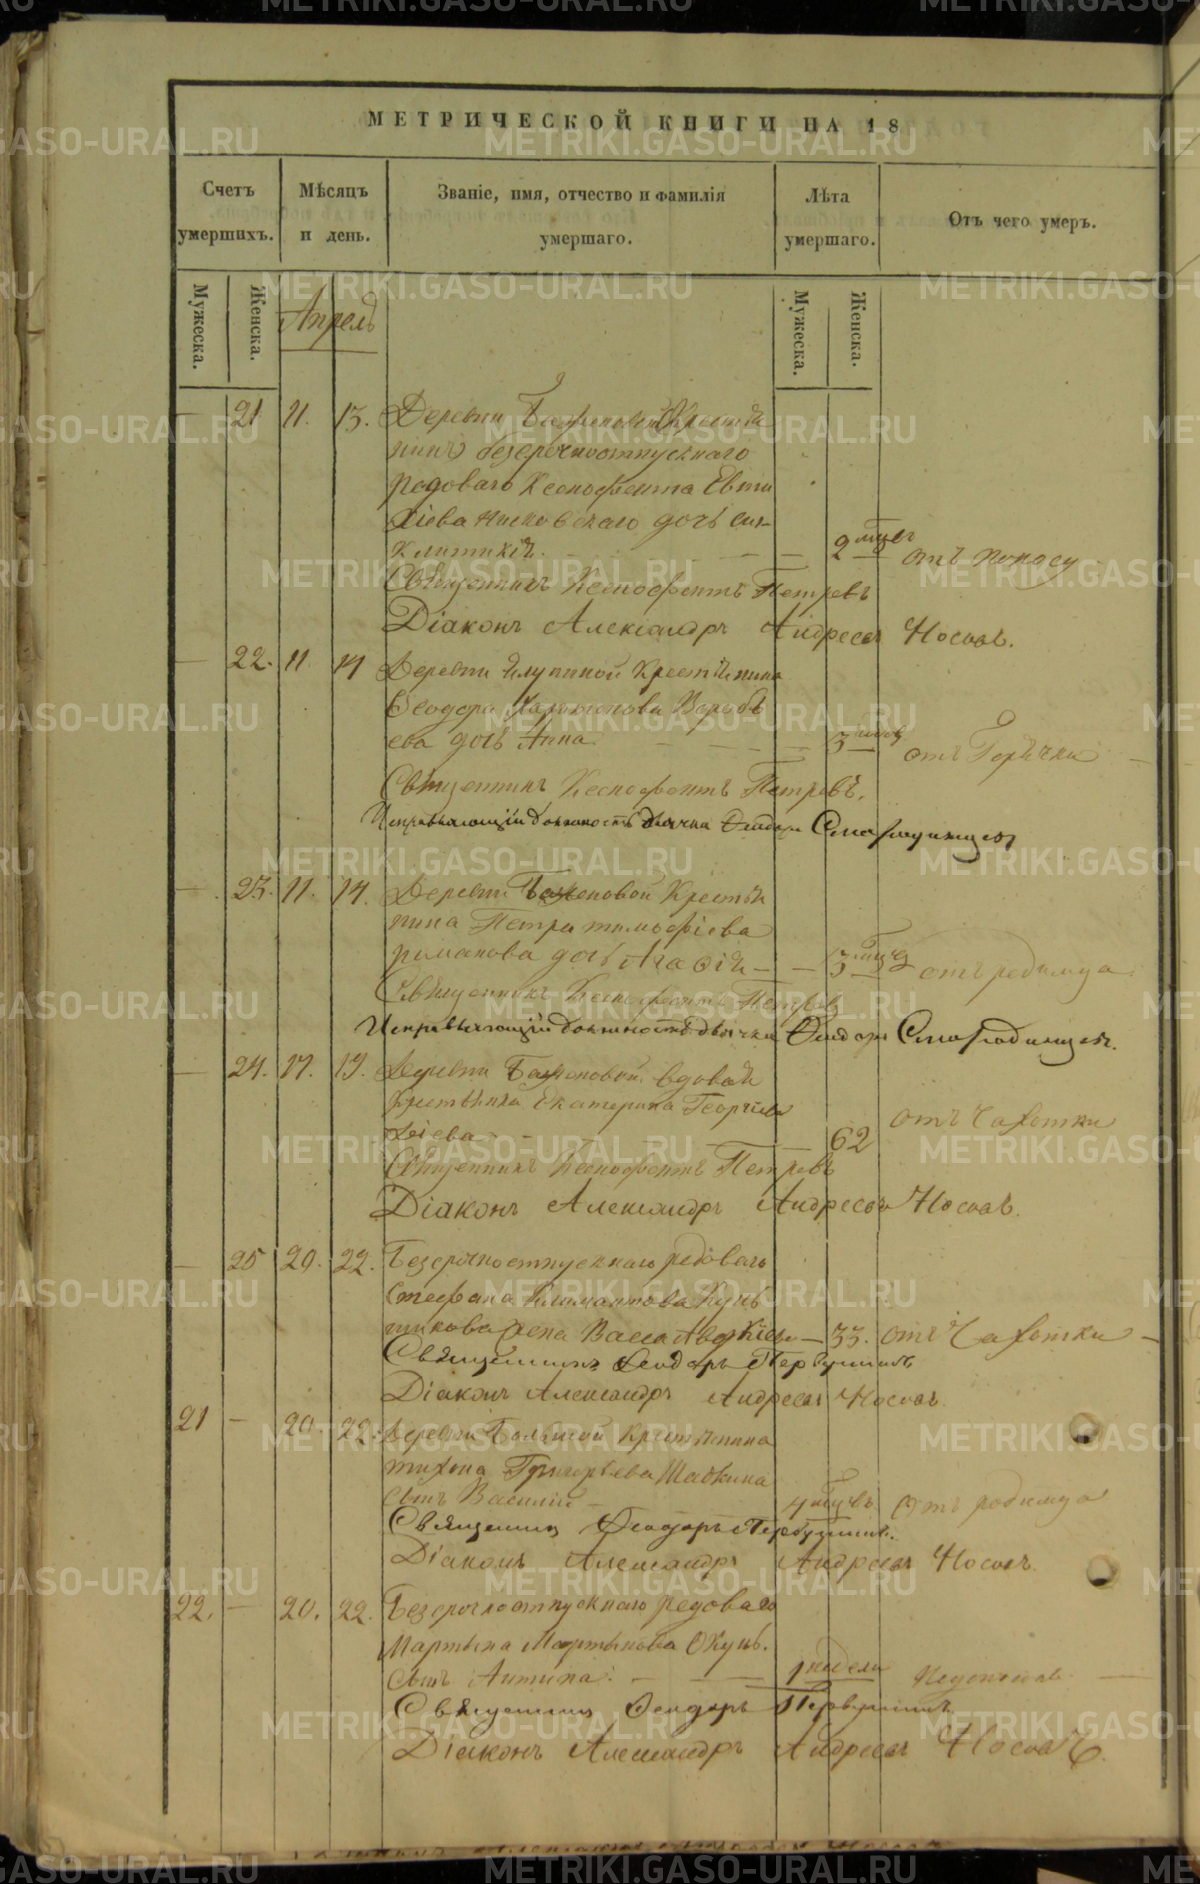 МЕТРИЧЕСКОЙ КНИГИ НА 18
Счетъ умершихъ.
Мѣсяцъ и день.
Званіе, имя, отчество и фамилія умершаго.
Лѣта умершаго.
Отъ чего умеръ.
Мужеска.
Женска.
Апрель
Мужеска.
Женска.
— 21 11. 13. Деревни
безсрочноотпускнаго
редоваго Ксенофонта Евти
хіева дочь Син-
клитикія. — — 2 отъ поносу
Священникъ Ксенофонтъ Петровъ
Діаконъ Александръ Андреевъ Носовъ.
— 22. 11. 14 Деревни Крестьянина
Феодора Харитонова Воробь
ева дочь Анна. — — 3 отъ Горячки —
Священникъ Ксенофонтъ Петровъ.
Исправляющій должность дьячка Феодоръ Смородинцевъ
— 23. 11. 14. Деревни Баженовой Крестья
нина Петра Тимофіева
романова дочь Агафія — — 3 отъ родимца
Священникъ Ксенофонтъ Петровъ
Исправляющій должность дьячка Феодоръ Смородинцевъ.
— 24. 17. 19. Деревни Баженовой вдовая
Екатерина Георгіева
— — 62 отъ Чахотки
Священникъ Ксенофонтъ Петровъ
Діаконъ Александръ Андреевъ Носовъ.
— 25 20. 22. Безсрочноотпускнаго редоваго
Стефана Климантова
жена Васса Авдкіева — 33. отъ Чахотки —
Священникъ Феодоръ Первушинъ
Діаконъ Александръ Андреевъ Носовъ
21 — 20. 22. Деревни Крестьянина
тихона Григорьева
сынъ Василій — 4 Отъ родимца
Священникъ Феодоръ Первушинъ.
Діаконъ Александръ Андреевъ Носовъ.
22. — 20. 22. Безсрочноотпускнаго редоваго
Мартына Мартынова
сынъ Антипа. — — 1 недели —
Священникъ Феодоръ Первушинъ
Діаконъ Александръ Андреевъ Носовъ.
METRIKI.GASO-URAL.RU